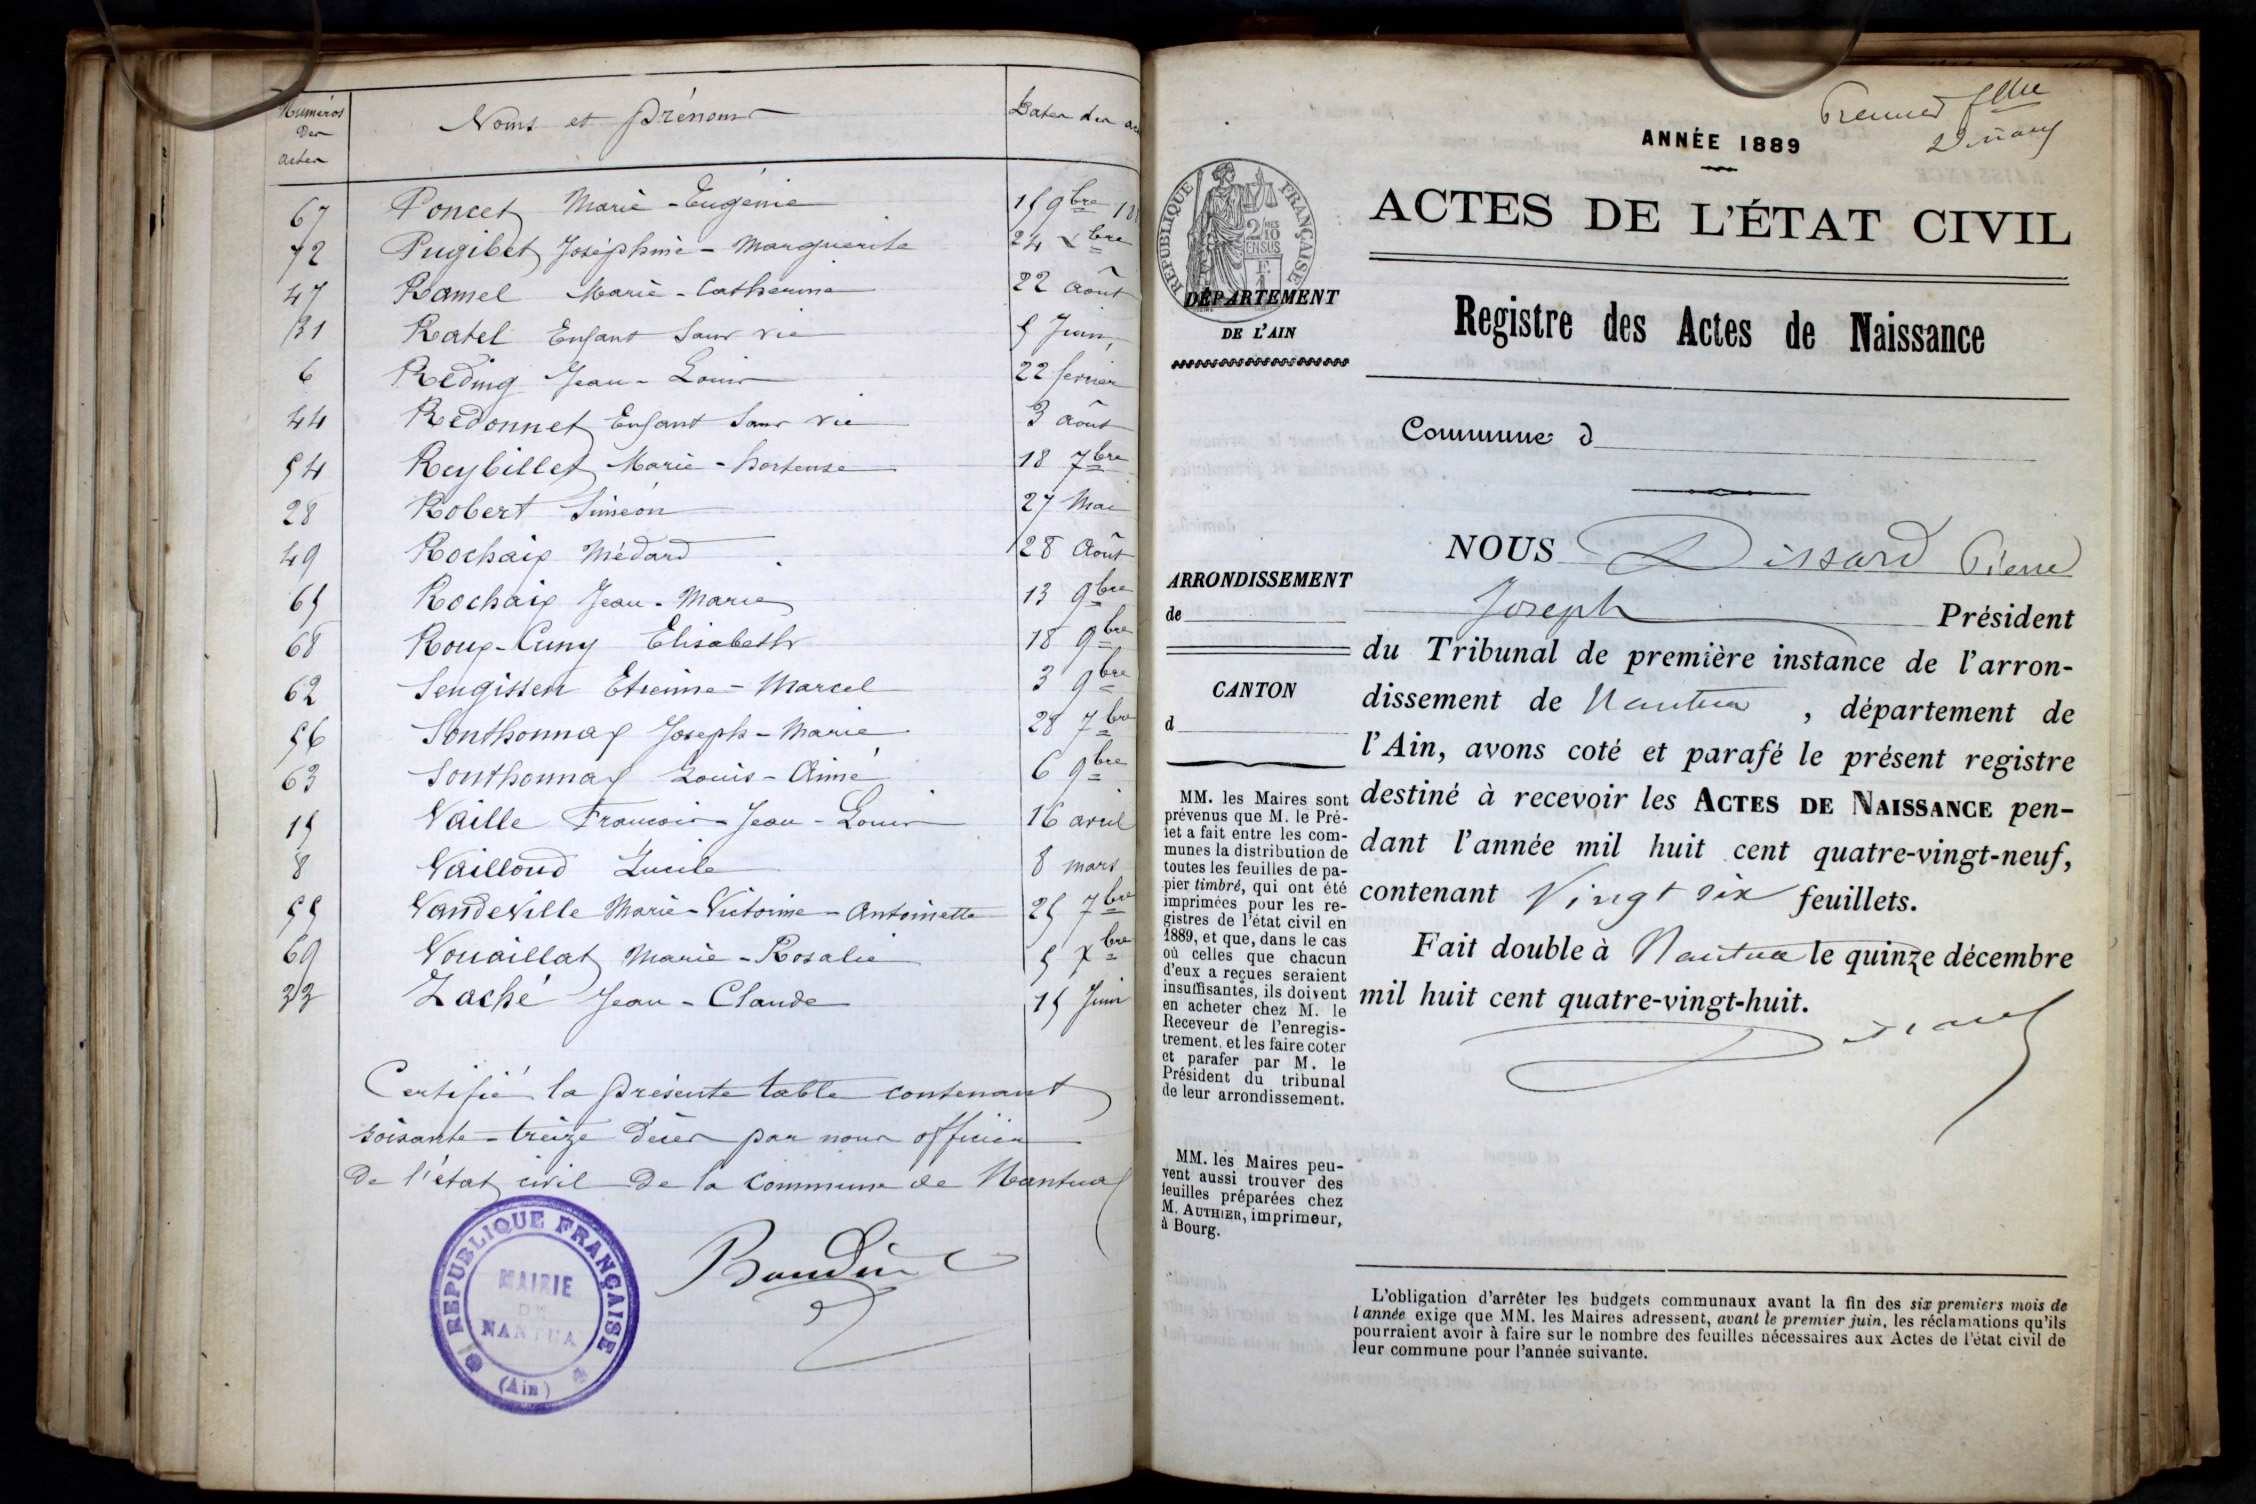 Numéros des actes Noms et Prénoms Dates des
67 Poncet Marie-Eugénie 15 9bre
72 Pugibet Joséphine-Marguerite 24 Xbre
47 Ramel Marie-Catherine 22 Août
31 Ratel Enfant sans vie 5 Juin
6 Réding Jean-Louis 22 fevrier
44 Redonnet Enfant sans vie 3 Août
54 Reybillet Marie-hortense 18 7bre
28 Robert Siméon 27 Mai
49 Rochaix Médard 28 Août
65 Rochaix Jean-Marie 13 9bre
68 Roux-Cuny Elisabeth 18 9bre
62 Sengissen Etienne-Marcel 3 9bre
56 Sonthonnax Joseph-Marie 28 7bre
63 Sonthonnax Louis-Aimé 6 9bre
15 Vaille François-Jean-Louis 16 avril
8 Vailloud Lucile 8 mars
55 Vandeville Marie-Victorine-Antoinette 25 7bre
69 Vouaillat Marie-Rosalie 5 Xbre
33 Zaché Jean-Claude 15 Juin
Certifié la présente table contenant
soixante-treize décès par nous officier
de l'état civil de la commune de Nantua
Baudin
REPUBLIQUE FRANÇAISE
MAIRIE
DE
NANTUA
(Ain)
Premier fllet
ANNÉE 1889
ACTES DE L'ÉTAT CIVIL
RÉPUBLIQUE FRANÇAISE
2/10 EN SUS
DÉPARTEMENT
DE L'AIN
Registre des Actes de Naissance
Commune d
NOUS Dissard Pierre
Joseph Président
du Tribunal de première instance de l'arron-
dissement de Nantua, département de
l'Ain, avons coté et parafé le présent registre
destiné à recevoir les ACTES DE NAISSANCE pen-
dant l'année mil huit cent quatre-vingt-neuf,
contenant Vingt six feuillets.
Fait double à Nantua le quinze décembre
mil huit cent quatre-vingt-huit.
ARRONDISSEMENT
de
CANTON
d
MM. les Maires sont
prévenus que M. le Pré-
fet a fait entre les com-
munes la distribution de
toutes les feuilles de pa-
pier timbré, qui ont été
imprimées pour les re-
gistres de l'état civil en
1889, et que, dans le cas
où celles que chacun
d'eux a reçues seraient
insuffisantes, ils doivent
en acheter chez M. le
Receveur de l'enregis-
trement, et les faire coter
et parafer par M. le
Président du tribunal
de leur arrondissement.
MM. les Maires peu-
vent aussi trouver des
feuilles préparées chez
M. AUTHIER, imprimeur,
à Bourg.
L'obligation d'arrêter les budgets communaux avant la fin des six premiers mois de
l'année exige que MM. les Maires adressent, avant le premier juin, les réclamations qu'ils
pourraient avoir à faire sur le nombre des feuilles nécessaires aux Actes de l'état civil de
leur commune pour l'année suivante.